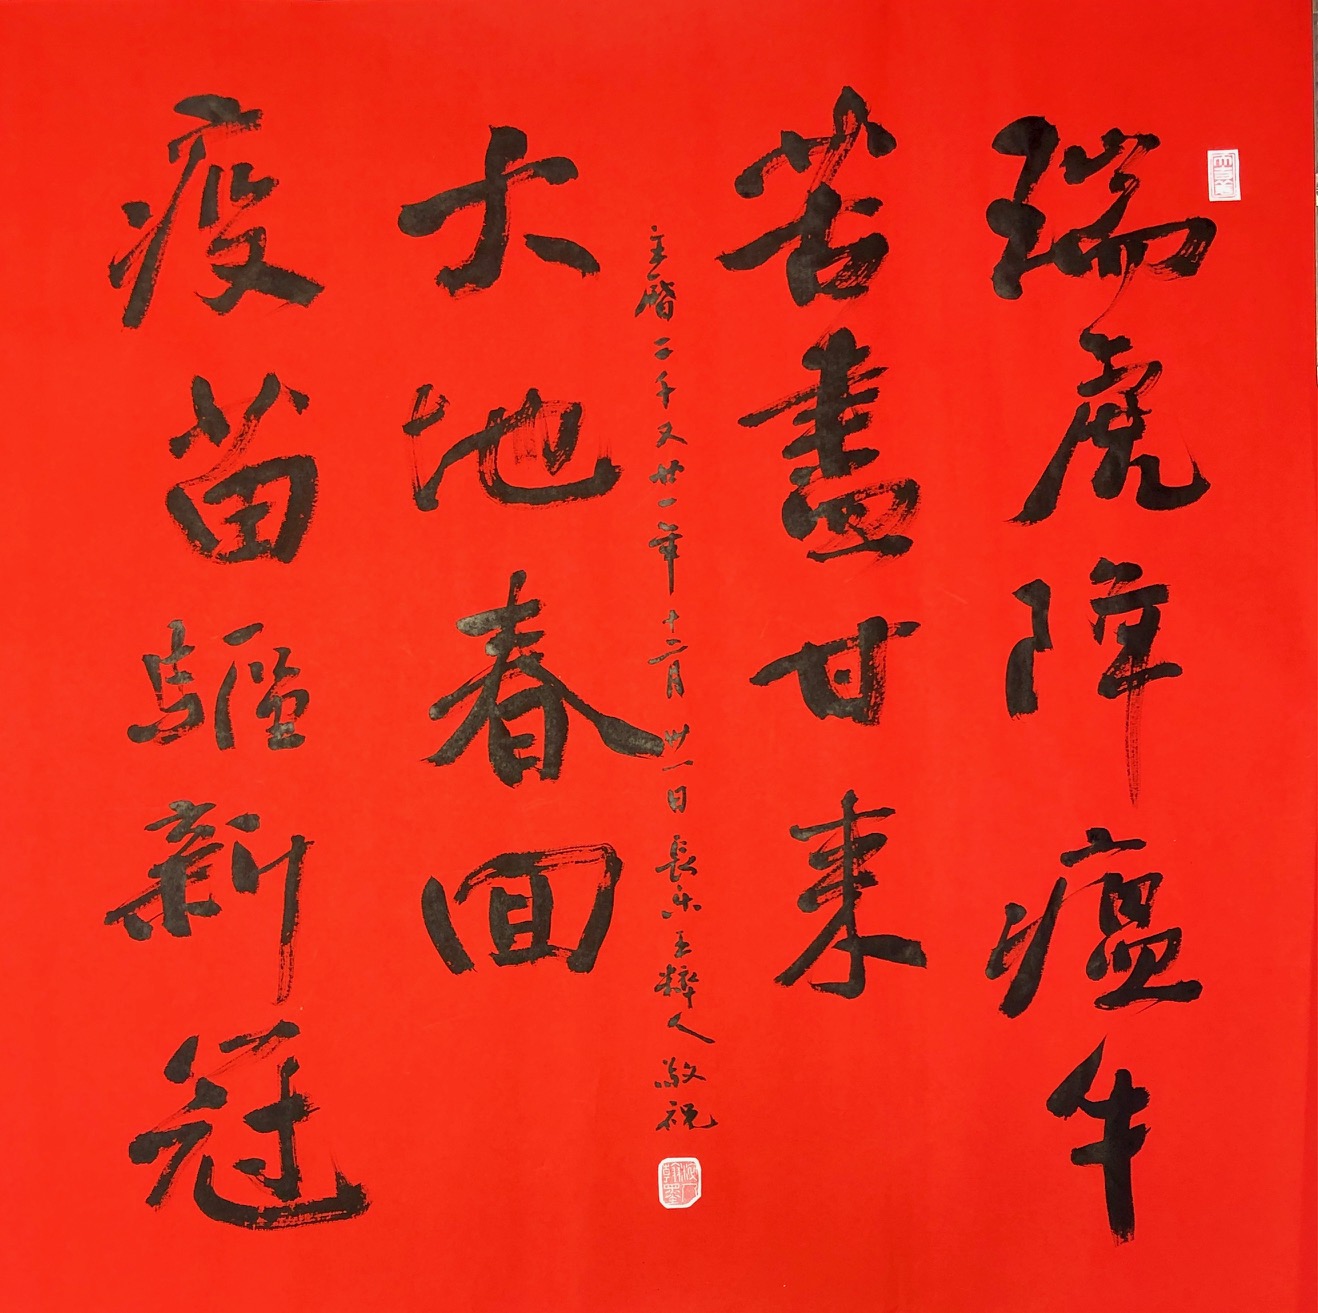 瑞虎降瘟牛
苦盡甘來
主曆二千又廿一年十二月卅一日長樂王粹人敬祝
大地春回
疫苗驅新冠